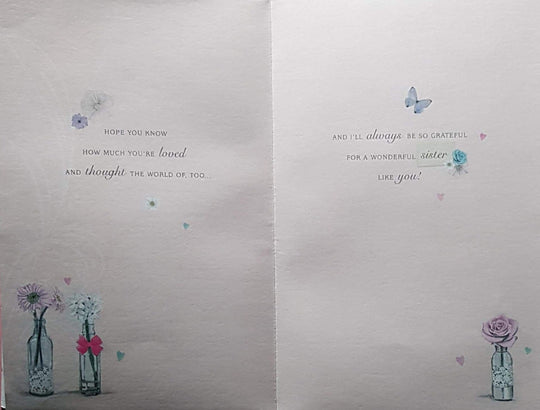 HOPE YOU KNOW
HOW MUCH YOU'RE loved
AND thought THE WORLD OF, TOO...
AND I'LL always BE SO GRATEFUL
FOR A WONDERFUL sister
LIKE you!